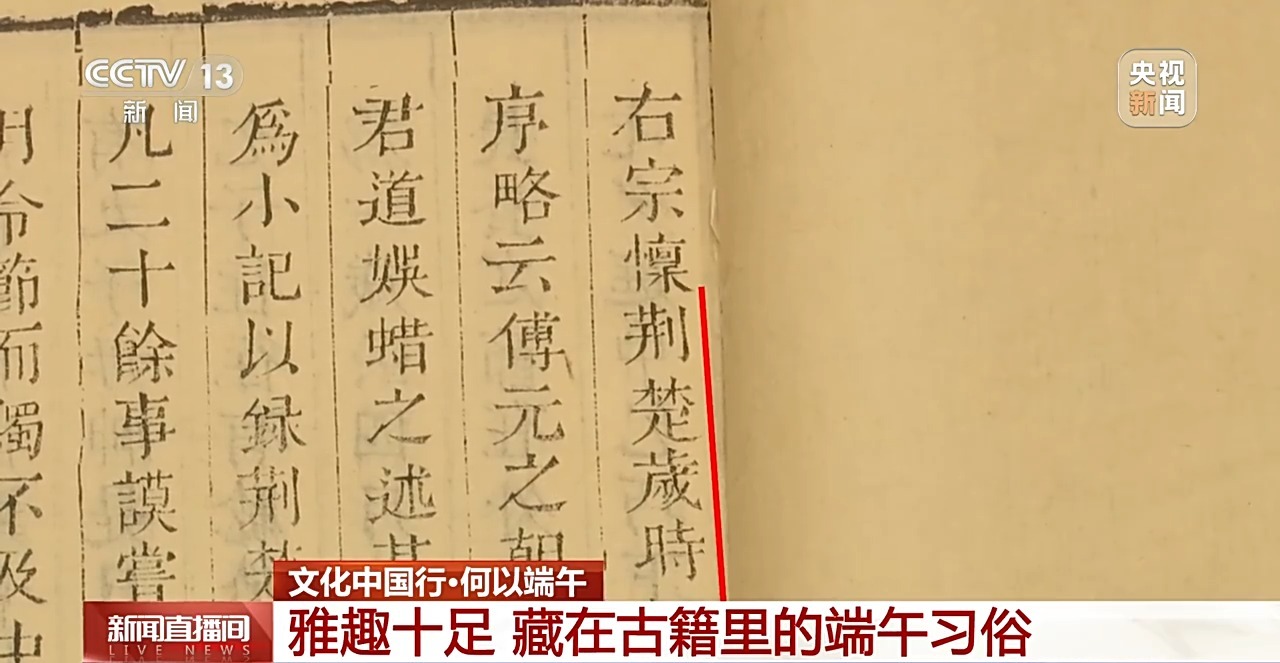 CCTV 13
新闻
央视
新闻
右宗懍荆楚歲時
序略云傅元之朝
君道娛蜡之述
爲小記以録荆楚
凡二十餘事謨嘗
月令節而獨不及中
文化中国行·何以端午
新闻直播间
LIVE NEWS
雅趣十足 藏在古籍里的端午习俗